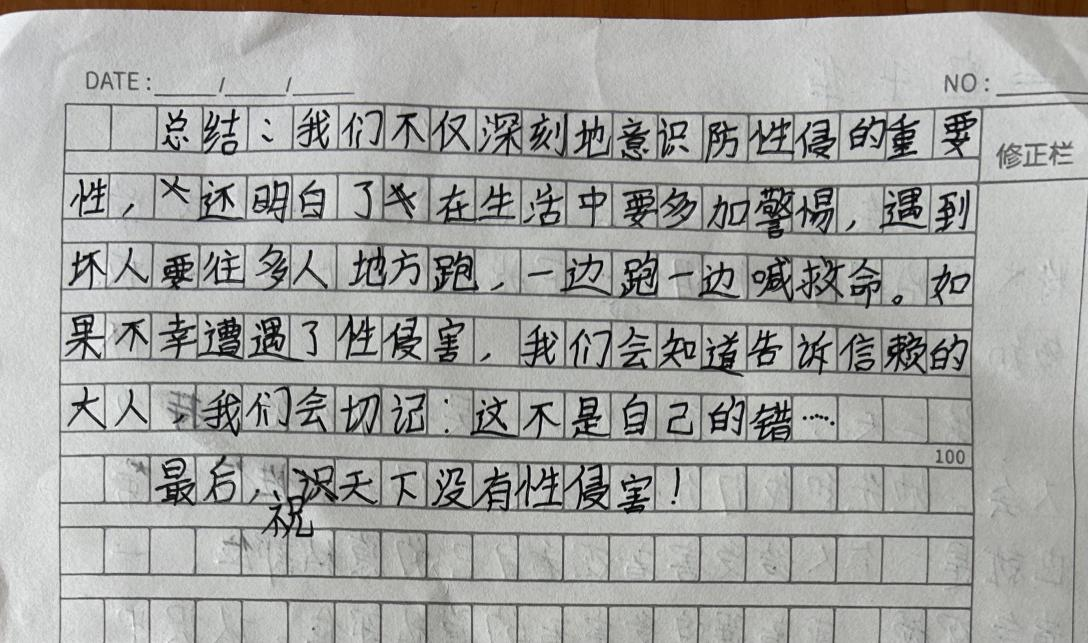 DATE：____/____/____ NO：____
修正栏
总结：我们不仅深刻地意识防性侵的重要
性，还明白了在生活中要多加警惕，遇到
坏人要往多人地方跑，一边跑一边喊救命。如
果不幸遭遇了性侵害，我们会知道告诉信赖的
大人，我们会切记：这不是自己的错……
100
最后，祝天下没有性侵害！